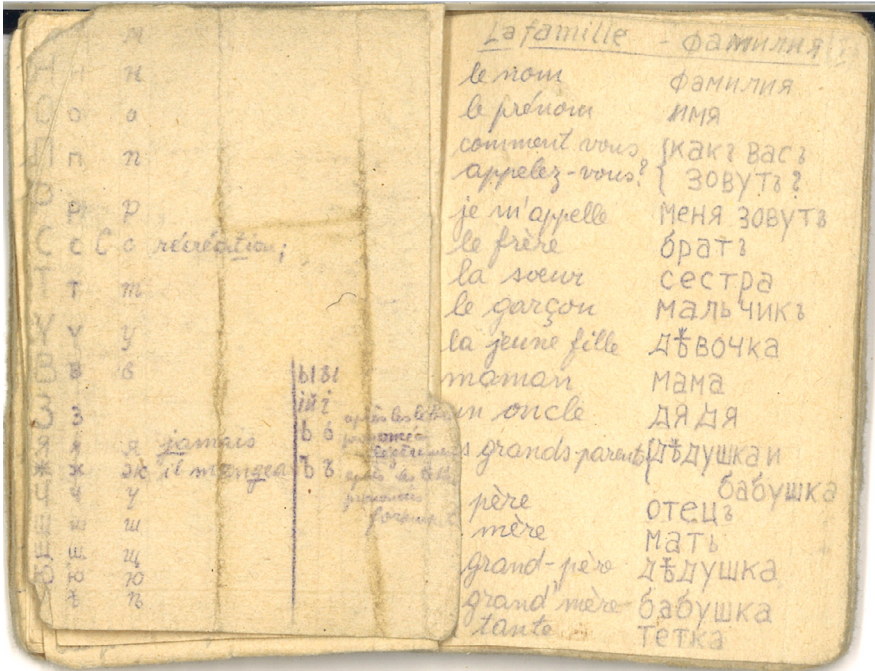 м
н н
о о
п п
р р
с С с récréation;
т т
у у
в в
з
я я jamais
ж ж il mangea
ч
ш ш
щ щ
ю ю
ѣ ѣ
ы ы
ь
ъ ъ
La famille - фамилия
le nom фамилия
le prénom имя
comment vous {какъ васъ
appelez-vous? { зовутъ?
je m'appelle меня зовутъ
le frère братъ
la soeur сестра
le garçon мальчикъ
la jeune fille дѣвочка
maman мама
un oncle дядя
grands-parents {дѣдушка и
бабушка
père отецъ
mère мать
grand-père дѣдушка
grand'mère бабушка
tante тетка